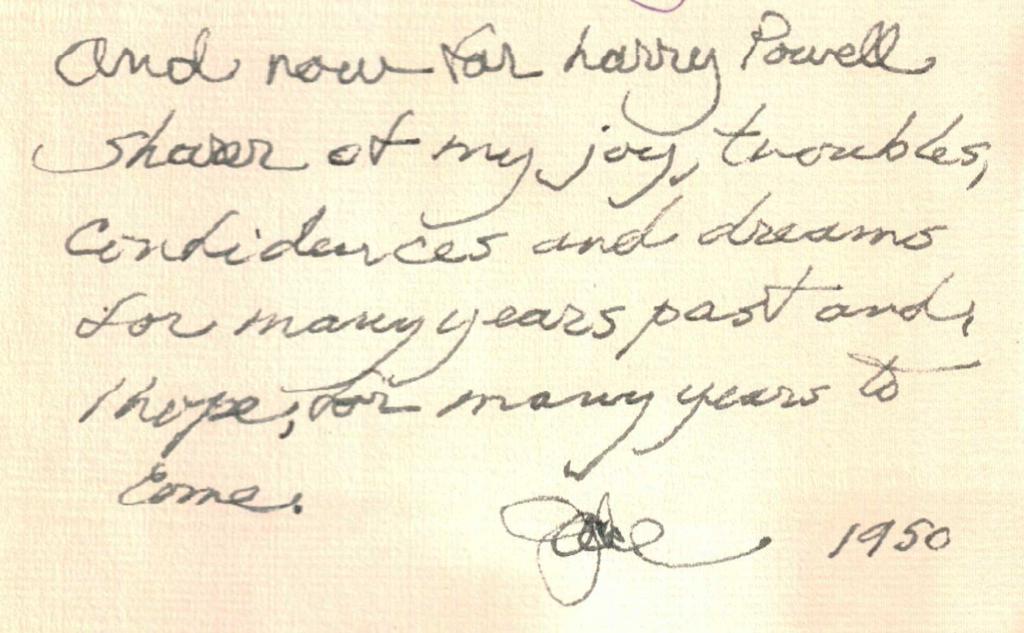 and now for Larry Powell
sharer of my joy, troubles,
Confidences and dreams
for many years past and,
I hope, for many years to
come.
Jake 1950